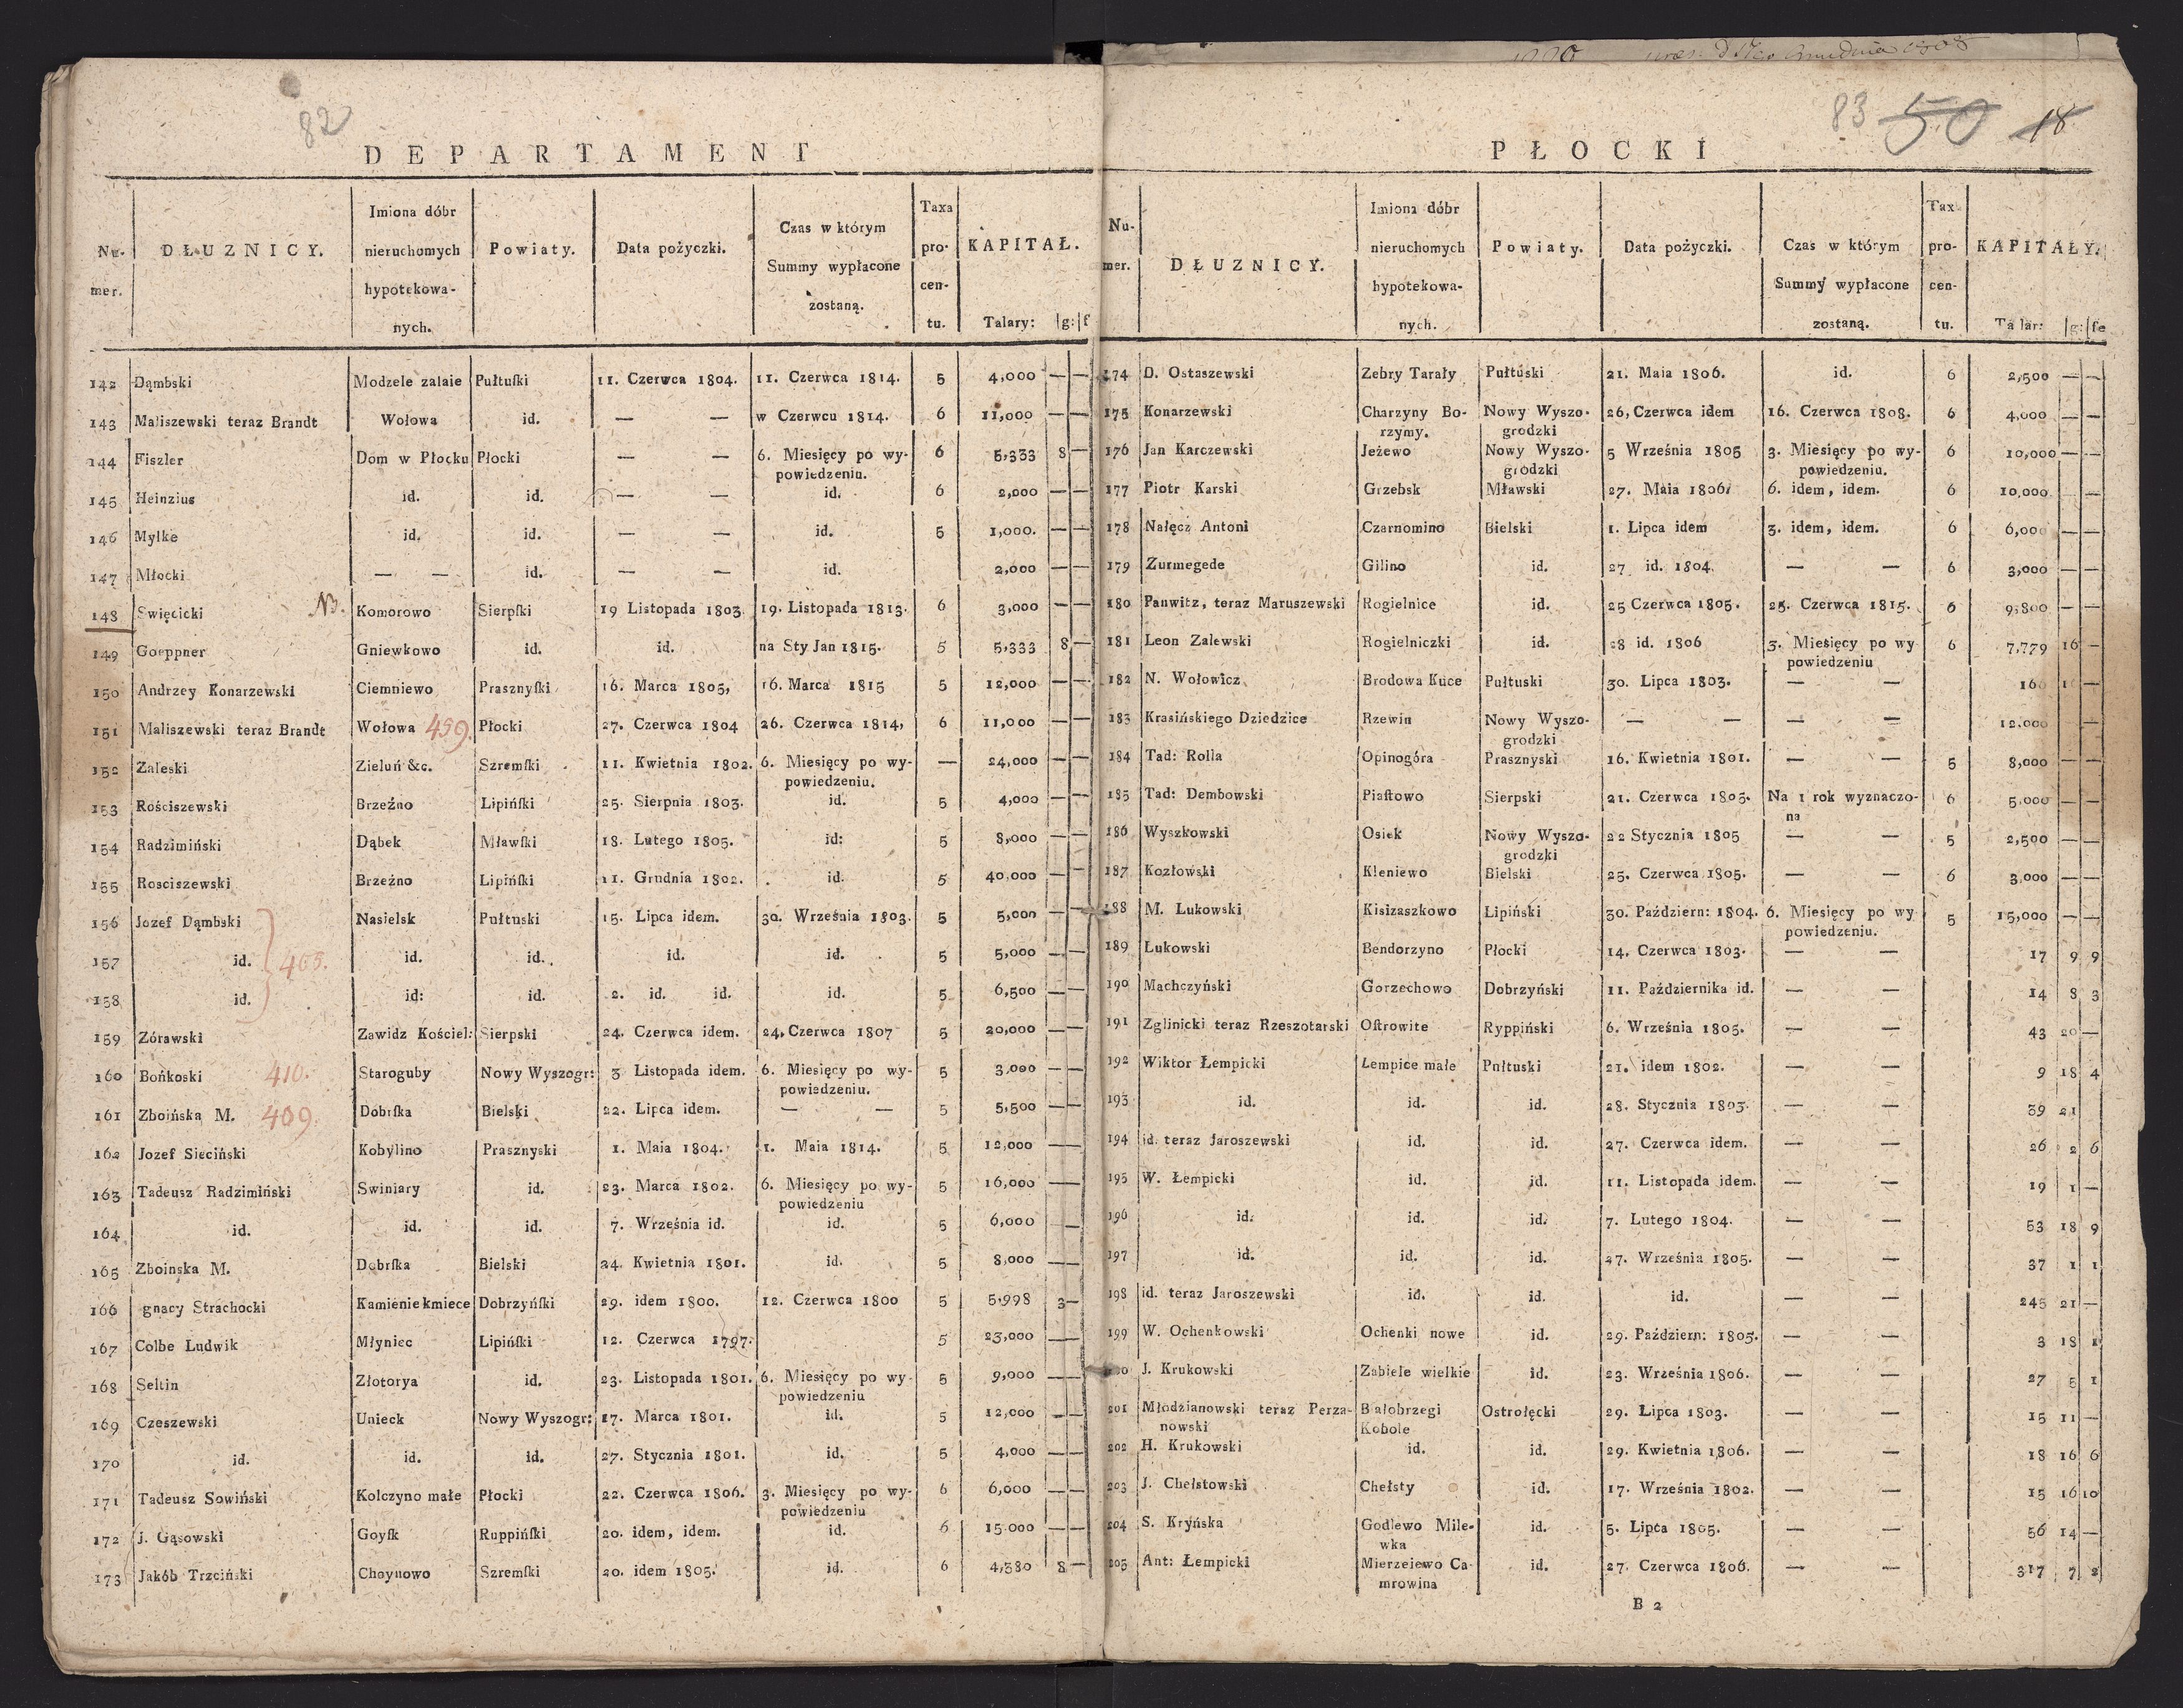 82
DEPARTAMENT
Nu-mer. | DŁUZNICY. | Imiona dóbr nieruchomych hypotekowa-nych. | Powiaty. | Data pożyczki. | Czas w którym Summy wypłacone zostaną. | Taxa pro-cen-tu. | KAPITAŁ. Talary: |g:|f
142 Dąmbski | Modzele zalaie | Pułtuſki | 11. Czerwca 1804. | 11. Czerwca 1814. | 5 | 4,000 — —
143 Maliszewski teraz Brandt | Wołowa | id. | — — | w Czerwcu 1814. | 6 | 11,000 — —
144 Fiszler | Dom w Płocku | Płocki | — — | 6. Miesięcy po wy- | 6 | 5,333 8 —
powiedzeniu.
145 Heinzius | id. | id. | — — | id. | 6 | 2,000 — —
146 Mylke | id. | id. | — — | id. | 5 | 1,000. — —
147 Młocki | — — | id. | — — | id. | 2,000 — —
148 Swięcicki NB. | Komorowo | Sierpſki | 19 Listopada 1803. | 19. Listopada 1813. | 6 | 3,000 — —
149 Goeppner | Gniewkowo | id. | id. | na Sty Jan 1815. | 5 | 5,333 8 —
150 Andrzey Konarzewski | Ciemniewo | Prasznyſki | 16. Marca 1805, | 16. Marca 1815 | 5 | 12,000 — —
151 Maliszewski teraz Brandt | Wołowa 459. | Płocki | 27. Czerwca 1804 | 26. Czerwca 1814, | 6 | 11,000 — —
152 Zaleski | Zieluń &c. | Szremſki | 11. Kwietnia 1802. | 6. Miesięcy po wy- | — | 24,000 — —
powiedzeniu.
153 Rościszewski | Brzeźno | Lipińſki | 25. Sierpnia 1803. | id. | 5 | 4,000 — —
154 Radzimiński | Dąbek | Mławſki | 18. Lutego 1805. | id: | 5 | 8,000 — —
155 Rosciszewski | Brzeźno | Lipińſki | 11. Grudnia 1802. | id. | 5 | 40,000 — —
156 Jozef Dąmbski | Nasielsk | Pułtuski | 15. Lipca idem. | 30. Września 1803. | 5 | 5,000 — —
157 id. 405. | id. | id. | id. | id. | 5 | 5,000 — —
158 id. | id: | id. | 2. id. id. | id. | 5 | 6,500 — —
159 Zórawski | Zawidz Kościel: | Sierpski | 24. Czerwca idem. | 24, Czerwca 1807 | 5 | 20,000 — —
160 Bońkoski 410. | Staroguby | Nowy Wyszogr: | 3 Listopada idem. | 6. Miesięcy po wy- | 5 | 3,000 — —
powiedzeniu.
161 Zboińska M. 409. | Dobrſka | Bielski | 22. Lipca idem. | — — | 5 | 5,500 — —
162 Jozef Sieciński | Kobylino | Prasznyski | 1. Maia 1804. | 1. Maia 1814. | 5 | 12,000 — —
163 Tadeusz Radzimiński | Swiniary | id. | 23. Marca 1802. | 6. Miesięcy po wy- | 5 | 16,000 — —
powiedzeniu
164 id. | id. | id. | 7. Września id. | id. | 5 | 6,000 —
165 Zboinska M. | Dobrſka | Bielski | 24. Kwietnia 1801. | id. | 5 | 8,000 — —
166 gnacy Strachocki | Kamienie kmiece | Dobrzyńſki | 29. idem 1800. | 12. Czerwca 1800 | 5 | 5,998 3 —
167 Colbe Ludwik | Młyniec | Lipińſki | 12. Czerwca 1797. | 5 | 23,000 — —
168 Seltin | Złotorya | id. | 23. Listopada 1801. | 6. Miesięcy po wy- | 5 | 9,000 — —
powiedzeniu
169 Czeszewski | Unieck | Nowy Wyszogr: | 17. Marca 1801. | id. | 5 | 12,000 — —
170 id. | id. | id. | 27. Stycznia 1801. | id. | 5 | 4,000 — —
171 Tadeusz Sowiński | Kolczyno małe | Płocki | 22. Czerwca 1806. | 3. Miesięcy po wy- | 6 | 6,000 — —
powiedzeniu
172 J. Gąsowski | Goyſk | Ruppińſki | 20. idem, idem. | id. | 6 | 15.000 — —
173 Jakób Trzciński | Choynowo | Szremſki | 20. idem 1805. | id. | 6 | 4,380 8 —
83 50 18
PŁOCKI
Nu-mer. | DŁUZNICY. | Imiona dóbr nieruchomych hypotekowa-nych. | Powiaty. | Data pożyczki. | Czas w którym Summy wypłacone zostaną. | Tax pro-cen-tu. | KAPITAŁY. Talar: |g:|fe
174 D. Ostaszewski | Zebry Tarały | Pułtuski | 21. Maia 1806. | id. | 6 | 2,500 — —
175 Konarzewski | Charzyny Bo- | Nowy Wyszo- | 26, Czerwca idem | 16. Czerwca 1808. | 6 | 4,000 — —
rzymy. | grodzki
176 Jan Karczewski | Jeżewo | Nowy Wyszo- | 5 Września 1805 | 3. Miesięcy po wy- | 6 | 10,000 — —
grodzki | powiedzeniu.
177 Piotr Karski | Grzebsk | Mławski | 27. Maia 1806. | 6. idem, idem. | 6 | 10,000 — —
178 Nałęcz Antoni | Czarnomino | Bielski | 1. Lipca idem | 3. idem, idem. | 6 | 6,000 — —
179 Zurmegede | Gilino | id. | 27 id. 1804. | — — | 6 | 3,000 — —
180 Panwitz, teraz Maruszewski | Rogielnice | id. | 25 Czerwca 1805. | 25. Czerwca 1815. | 6 | 9,800 — —
181 Leon Zalewski | Rogielniczki | id. | 28 id. 1806 | 3. Miesięcy po wy | 6 | 7,779 16 —
powiedzeniu
182 N. Wołowicz | Brodowa Kuce | Pułtuski | 30. Lipca 1803. | — — | —
183 Krasińskiego Dziedzice | Rzewin | Nowy Wyszo- | — — | — — | 12.000 — —
grodzki
184 Tad: Rolla | Opinogóra | Prasznyski | 16. Kwietnia 1801. | — — | 5 | 8,000 — —
185 Tad: Dembowski | Piaſtowo | Sierpski | 21. Czerwca 1805. | Na 1 rok wyznaczo- | 6 | 5.000 — —
na
186 Wyszkowski | Osiek | Nowy Wyszo- | 22 Stycznia 1805 | — — | 5 | 2,500 — —
grodzki
187 Kozłowski | Kleniewo | Bielski | 25. Czerwca 1805. | — — | 6 | 3,000 — —
188 M. Lukowski | Kisizaszkowo | Lipiński | 30. Październ: 1804. | 6. Miesięcy po wy | 5 | 15,000 — —
powiedzeniu.
189 Lukowski | Bendorzyno | Płocki | 14. Czerwca 1803. | — — | 17 9 9
190 Machczyński | Gorzechowo | Dobrzyński | 11. Października id. | — — | 14 8 3
191 Zglinicki teraz Rzeszotarski | Oſtrowite | Ryppiński | 6. Września 1805. | — — | 43 20 —
192 Wiktor Łempicki | Lempice małe | Pułtuski | 21. idem 1802. | — — | 9 18 4
193 id. | id. | id. | 28. Stycznia 1803. | — — | 39 21
194 id. teraz Jaroszewski | id. | id. | 27. Czerwca idem. | — — | 26 2 6
195 W. Łempicki | id. | id. | 11. Listopada idem. | — — | 19 1 —
196 id. | id. | id. | 7. Lutego 1804. | — — | 53 18 9
197 id. | id. | id. | 27. Września 1805. | — — | 37 1 1
198 id. teraz Jaroszewski | id. | id. | id. | — — | 245 21 —
199 W. Ochenkowski | Ochenki nowe | id. | 29. Październ: 1805. | — — | 3 18 1
J. Krukowski | Zabiele wielkie | id. | 23. Września 1806. | — — | 27 5 1
201 Młodzianowski teraz Perza- | Białobrzegi | Ostrołęcki | 29. Lipca 1803. | — — | 15 11 —
nowski | Kobole
202 H. Krukowski | id. | id. | 29. Kwietnia 1806. | — — | 18 16 6
203 J. Chełstowski | Chełsty | id. | 17. Września 1802. | — — | 15 16 10
204 S. Kryńska | Godlewo Mile- | id. | 5. Lipca 1805. | — — | 56 14 —
wka
205 Ant: Łempicki | Mierzeiewo Ca- | id. | 27. Czerwca 1806. | — — | 317 7 2
mrowina
B 2